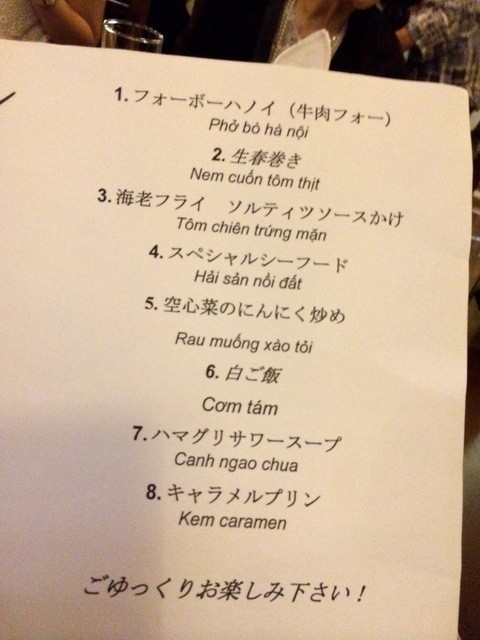 1. フォーボーハノイ（牛肉フォー）
Phở bò hà nội
2. 生春巻き
Nem cuốn tôm thịt
3. 海老フライ　ソルティツソースかけ
Tôm chiên trứng mặn
4. スペシャルシーフード
Hải sản nồi đất
5. 空心菜のにんにく炒め
Rau muống xào tỏi
6. 白ご飯
Cơm tám
7. ハマグリサワースープ
Canh ngao chua
8. キャラメルプリン
Kem caramen
ごゆっくりお楽しみ下さい！